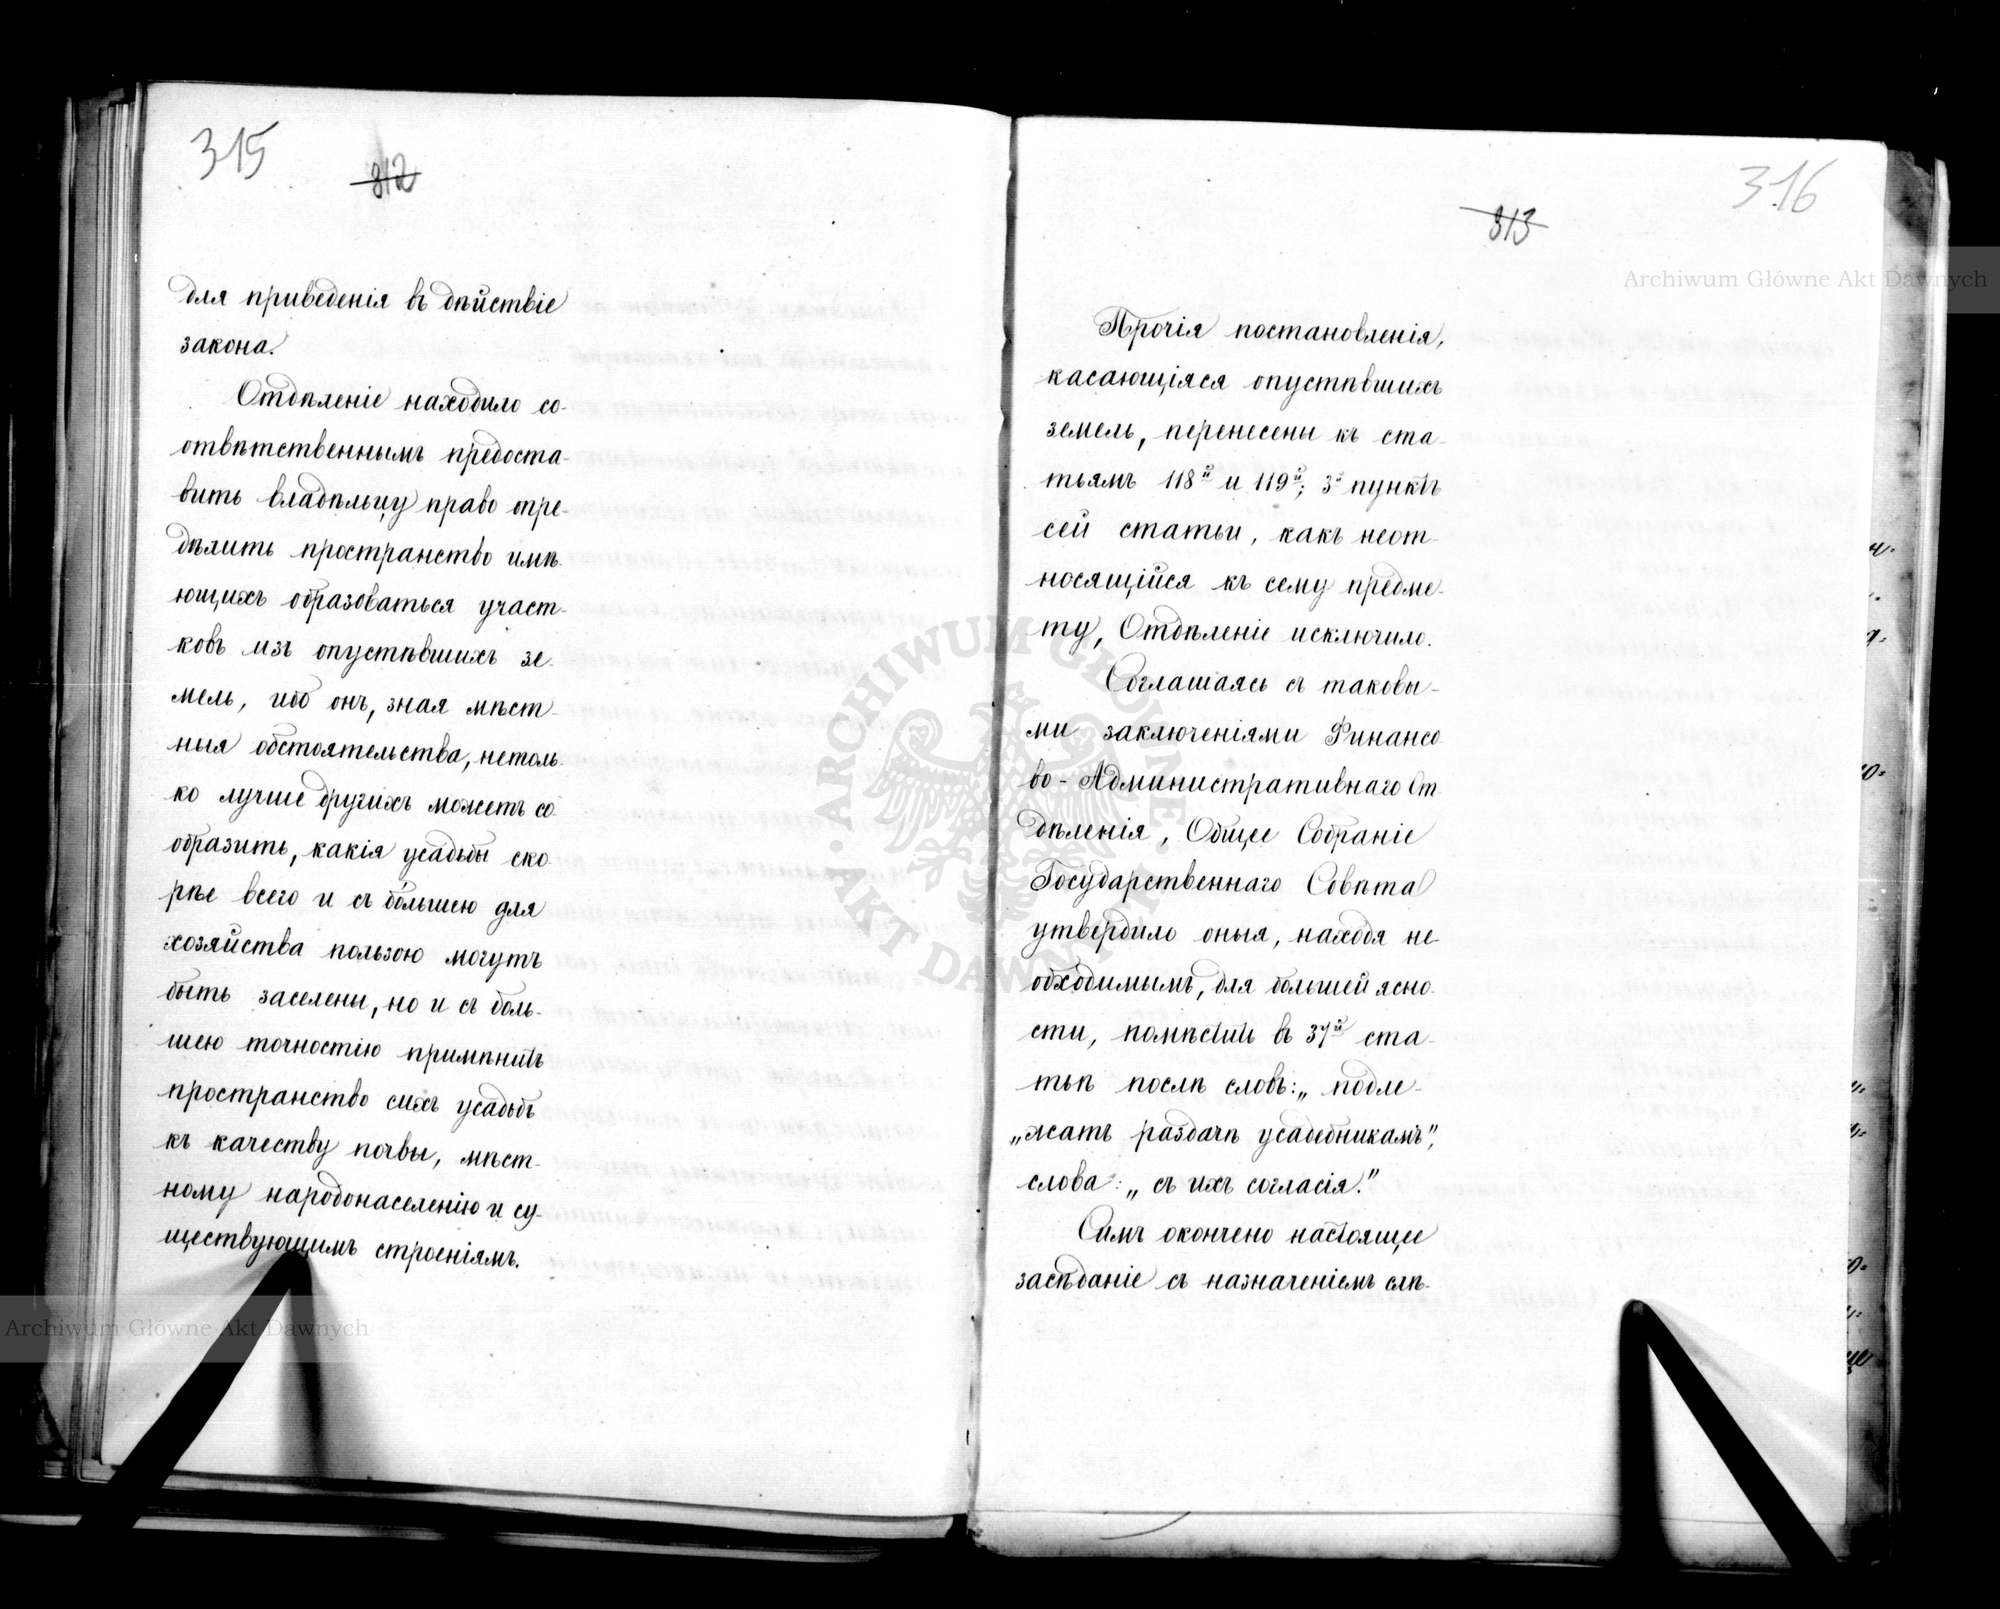 315
312
для приведенія въ дѣйствіе
закона.
Отдѣленіе находило со-
отвѣтственнымъ предоста-
вить владѣльцу право опре-
дѣлить пространство имѣ-
ющихъ образоваться участ-
ковъ изъ опустѣвшихъ зе-
мель, ибо онъ, зная мѣст-
ныя обстоятельства, нетоль-
ко лучше другихъ можетъ со-
образить, какія усадьбы ско-
рѣе всего и съ бо́льшею для
хозяйства пользою могутъ
быть заселены, но и съ боль-
шею точностію примѣнить
пространство сихъ усадьбъ
къ качеству почвы, мѣст-
ному народонаселенію и су-
ществующимъ строеніямъ.
316
313
Прочія постановленія,
касающіяся опустѣвшихъ
земель, перенесены къ ста-
тьямъ 118й и 119й; 3й пунктъ
сей статьи, какъ неот-
носящійся къ сему предме-
ту, Отдѣленіе исключило.
Соглашаясь съ таковы-
ми заключеніями Финансо-
во-Административнаго От-
дѣленія, Общее Собраніе
Государственнаго Совѣта
утвердило оныя, находя не-
обходимымъ, для большей ясно-
сти, помѣстить въ 37й ста-
тьѣ послѣ словъ: „подле-
„жатъ раздачѣ усадебникамъ",
слова: „съ ихъ согласія."
Симъ окончено настоящее
засѣданіе съ назначеніемъ слѣ-
Archiwum Główne Akt Dawnych
Archiwum Główne Akt Dawnych
ARCHIWUM GŁÓWNE AKT DAWNYCH